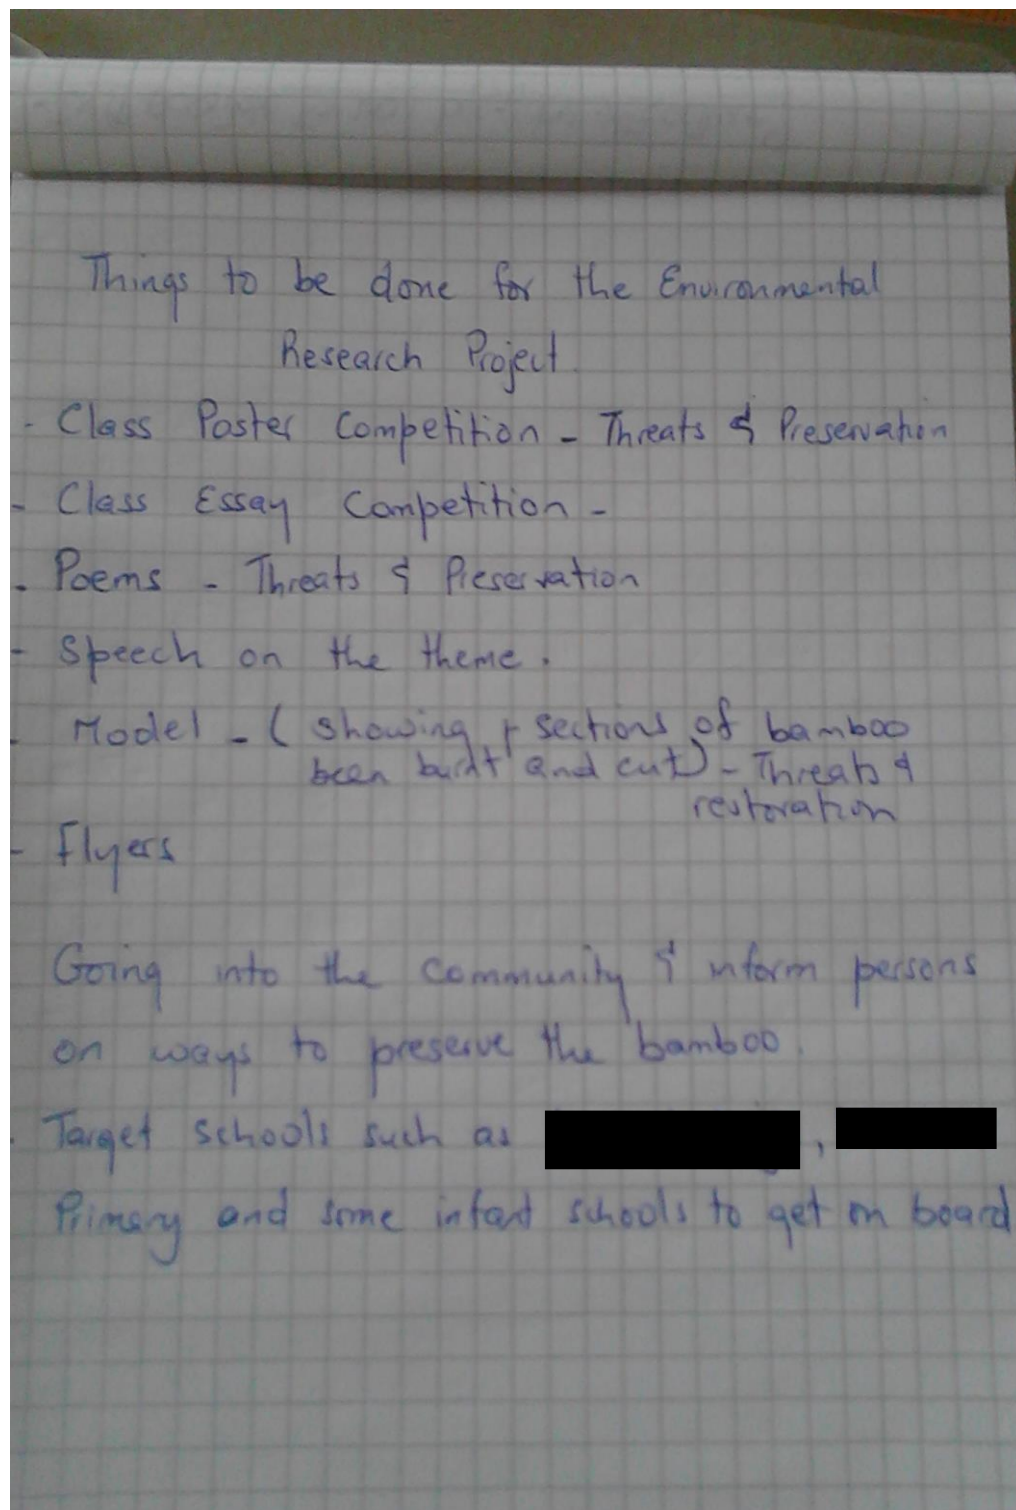 Things to be done for the Environmental
Research Project.
- Class Poster Competition - Threats & Preservation
- Class Essay Competition -
- Poems - Threats & Preservation
- Speech on the theme.
- Model - ( showing sections of bamboo
been burnt and cut) - Threats &
restoration
- Flyers
Going into the community & inform persons
on ways to preserve the bamboo.
. Target schools such as ,
Primary and some infant schools to get on board